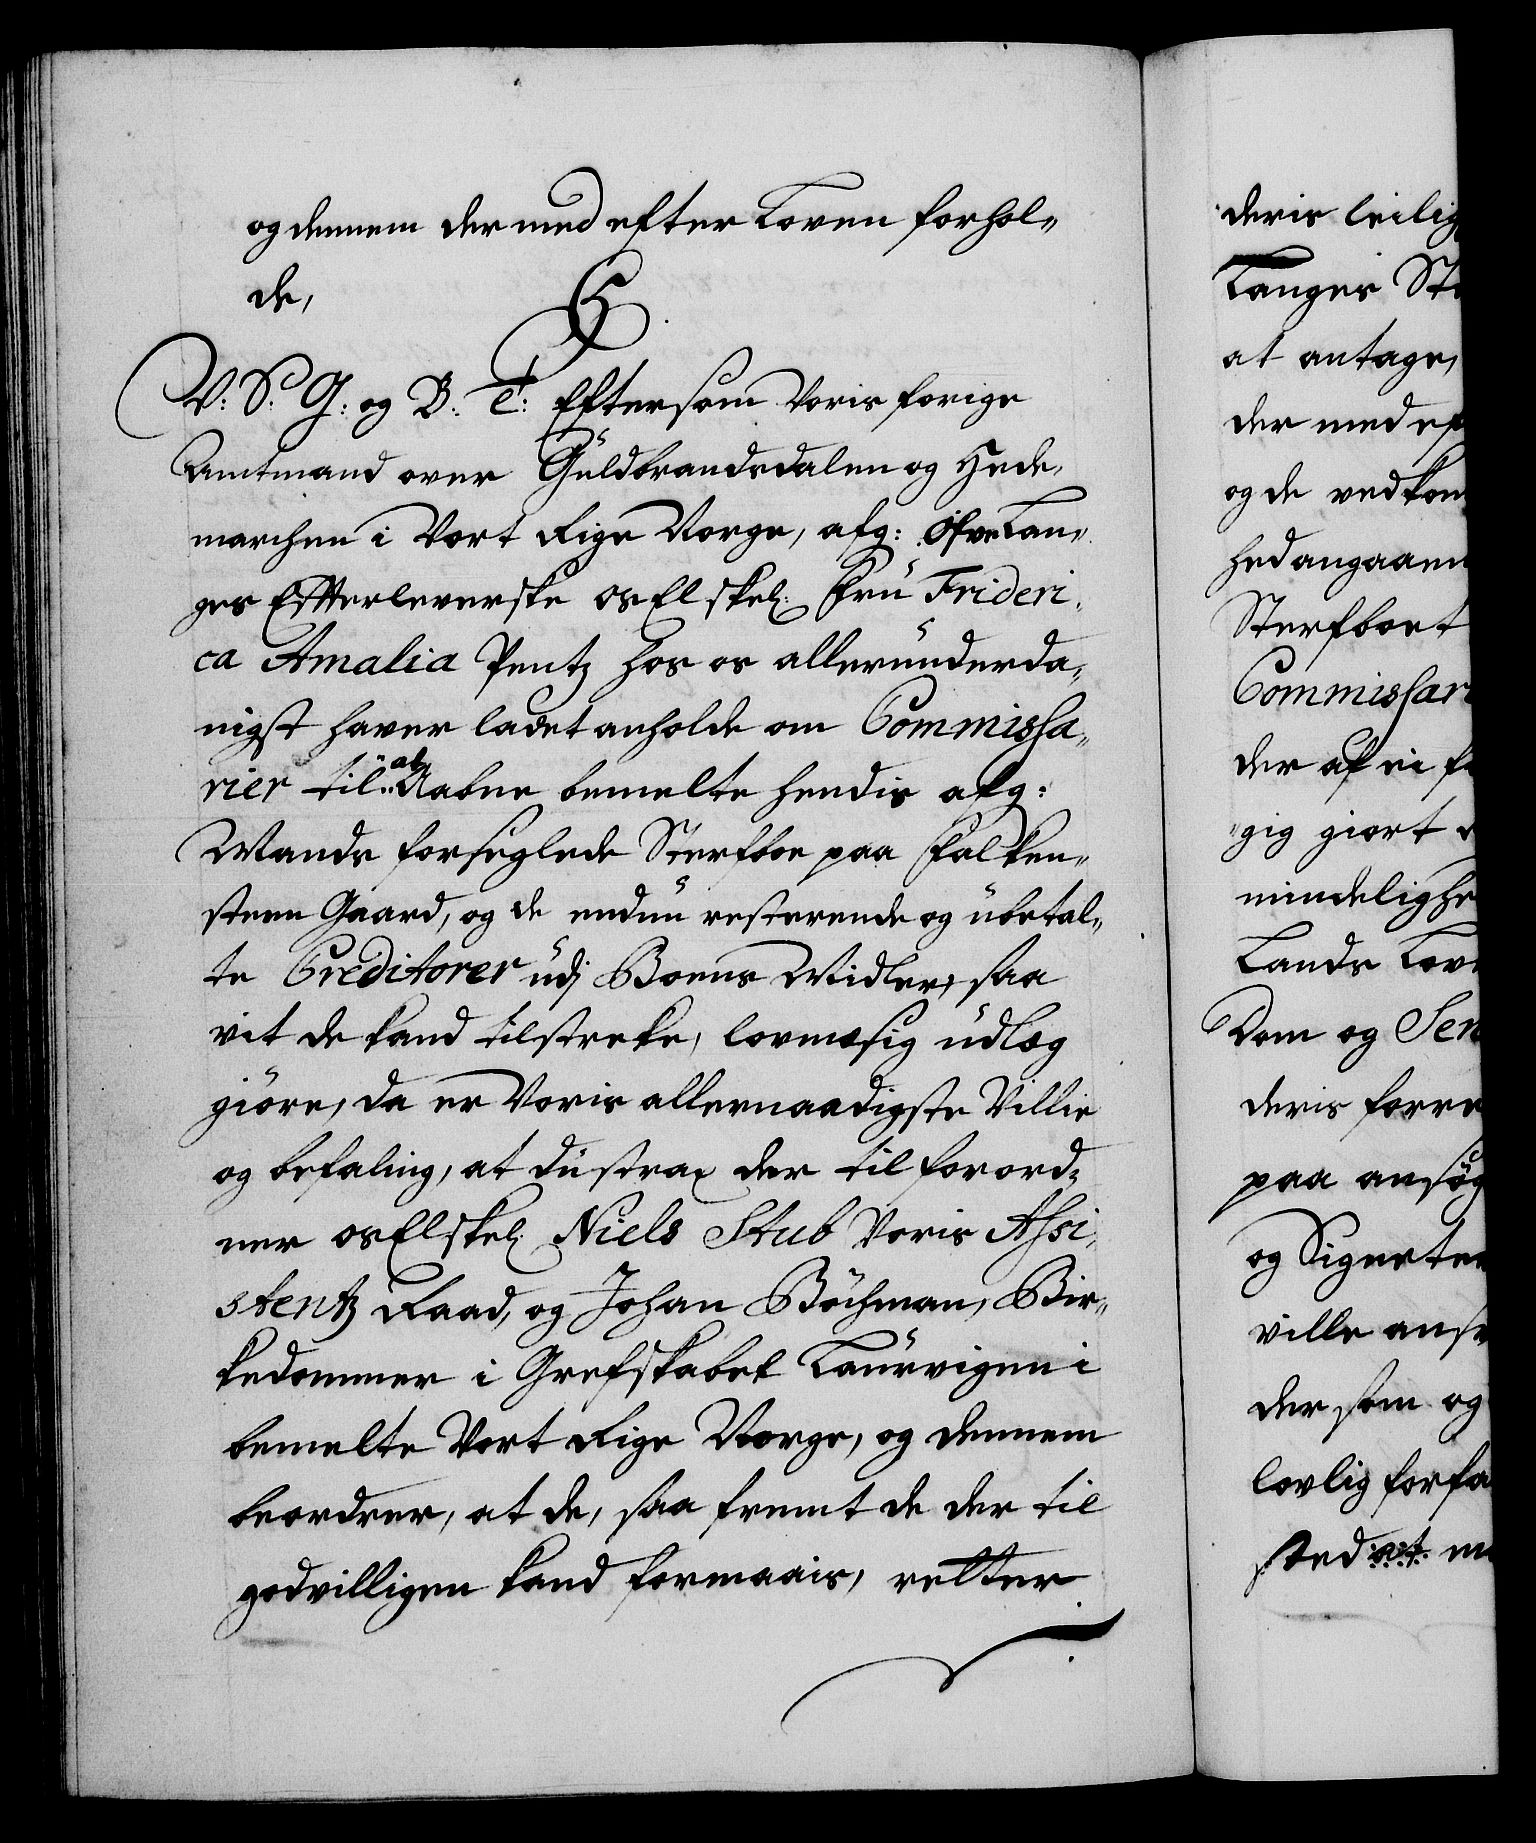 og dennem der med efter Loven forhol-
de,
V: S: G: og B: T: Eftersom Voris forige
Amtmand over Güldbrandsdalen og Hede-
marchen i Vort Rige Norge, afg: Ofve Lan-
ges Effterleverske os Elskel: Frü Frideri-
ca Amalia Pentz hos os alleründerda-
nigst haver ladet anholde om Commissa-
rier til at Aabne bemelte hendis afg:
Mands forseglede Sterfboe paa Falken-
steen Gaard, og de endnü resterende og übetal-
te Creditorer üdj Boens Midler, saa
vit de kand tilstreke, lovmæsig üdlæg
giöre, da er Voris allernaadigste Villie
og befaling, at dü strax der til forord-
ner os Elskel: Niels Stub Voris Assi-
stentz Raad, og Johan Böchman, Bir-
kedommer i Grefskabet Laürvigen i
bemelte Vort Rige Norge, og dennem
beordrer, at de, saa fremt de der til
godvilligen kand formaais, retter
deris leilig
Langes St
at antage,
der med ef
og de vedkom
hed angaaen
Sterfboet
Commissari
der af ei f
gig giort
mindelighe
Lands Lov
Dom og Sen
deris forre
paa ansøg
og Signeter
ville anse
der som og
lovlig forfa
sted at m